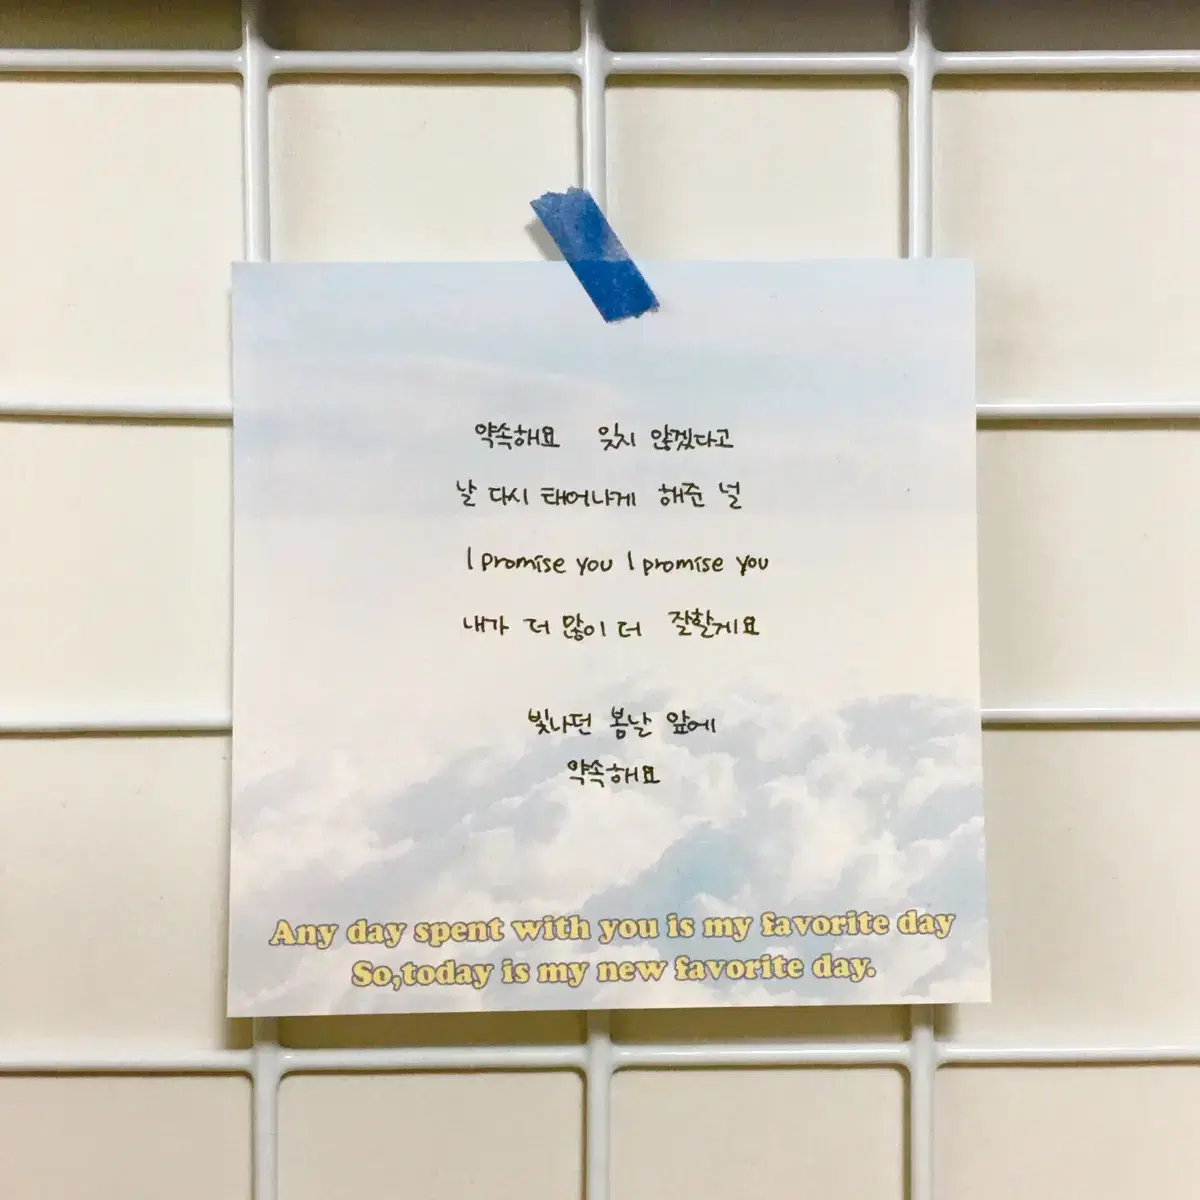 약속해요 잊지 않겠다고
날 다시 태어나게 해준 널
I promise you I promise you
내가 더 많이 더 잘할게요
빛나던 봄날 앞에
약속해요
Any day spent with you is my favorite day
So,today is my new favorite day.